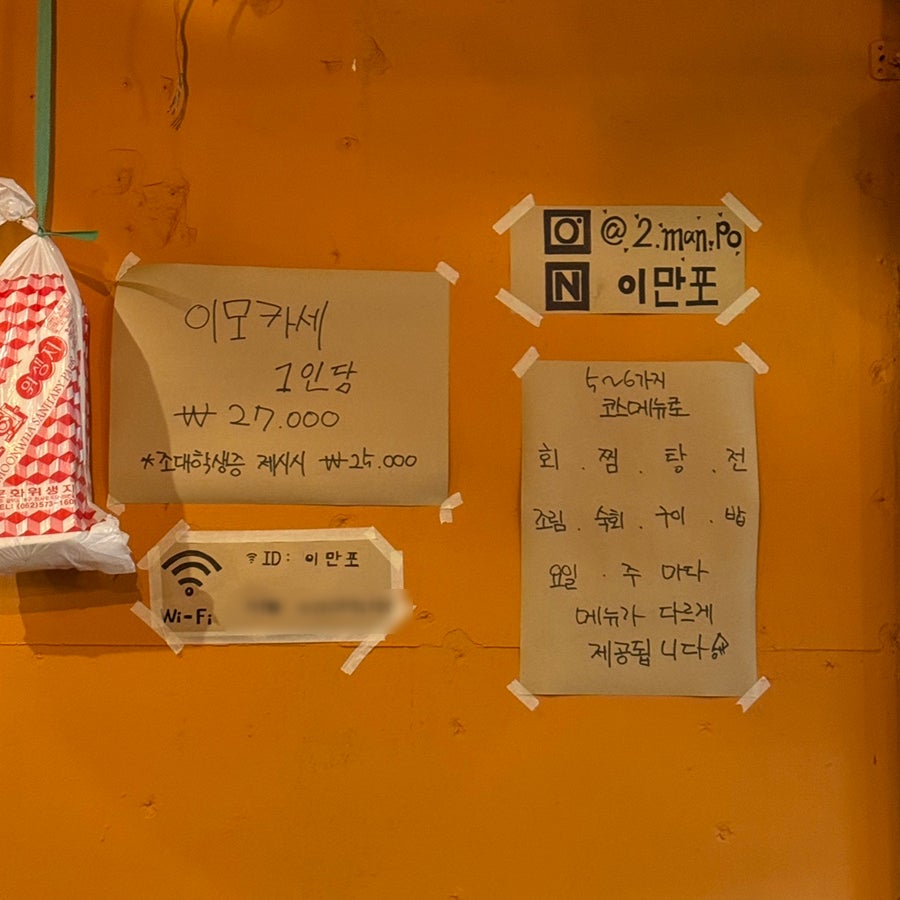 이모카세
1인당
₩ 27.000
*조대학생증 제시시 ₩25.000
@2.man.po
N 이만포
5~6가지
코스메뉴로
회 . 찜 . 탕 . 전
조림 . 숙회 . 구이 . 밥
요일 . 주 마다
메뉴가 다르게
제공됩니다
ID: 이만포
Wi-Fi
위생지
MOONWHA SANITARY
문화위생지